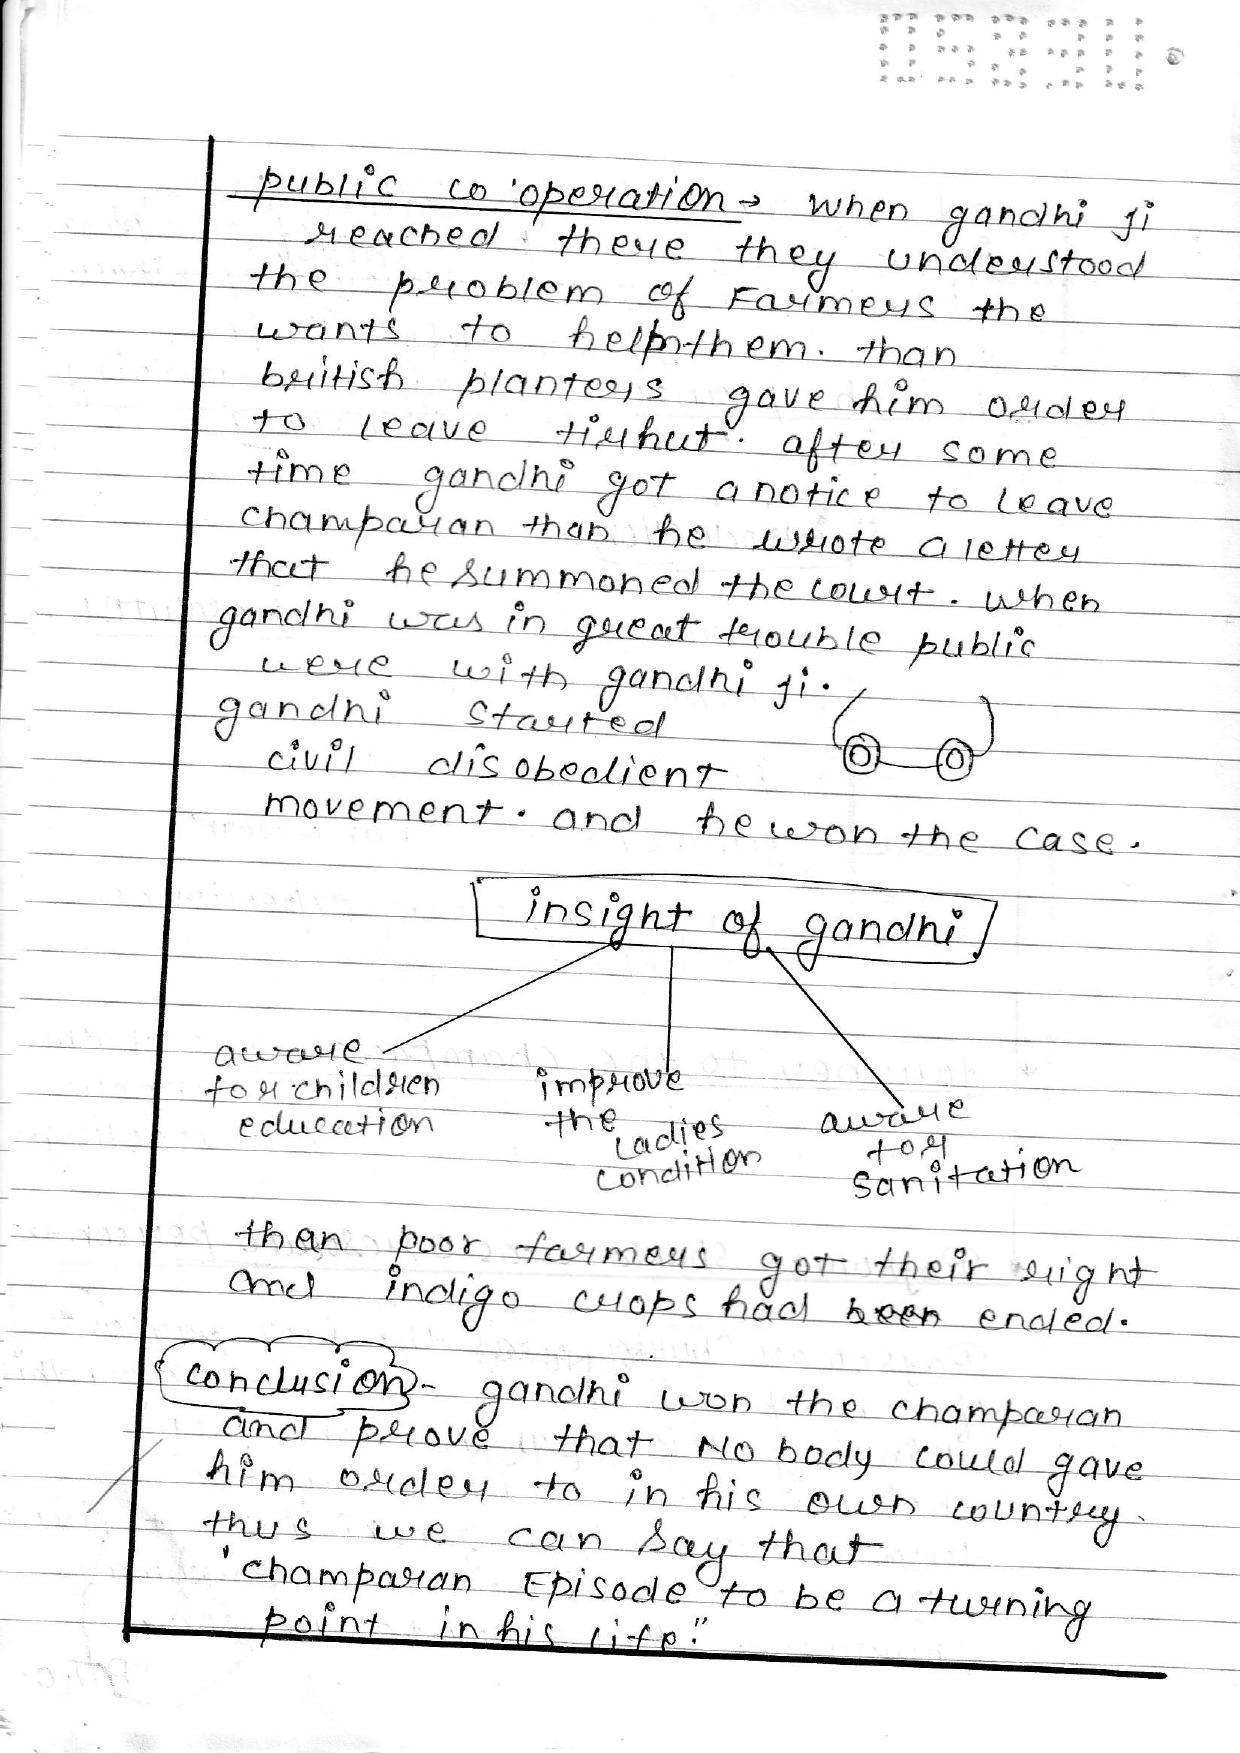 public co'operation → when gandhi ji
reached there they understood
the problem of Farmers the
wants to help them. than
british planters gave him order
to leave tirhut. after some
time gandhi got a notice to leave
champaran than he wrote a letter
that he summoned the court. when
gandhi was in great trouble public
were with gandhi ji.
gandhi started
civil disobedient
movement. and he won the case.
insight of gandhi
aware
for children
education
improve
the
Ladies
condition
aware
for
sanitation
then poor farmers got their right
and indigo crops had been ended.
conclusion - gandhi won the champaran
and prove that No body could gave
him order to in his own country.
thus we can say that
'champaran Episode to be a turning
point in his life."